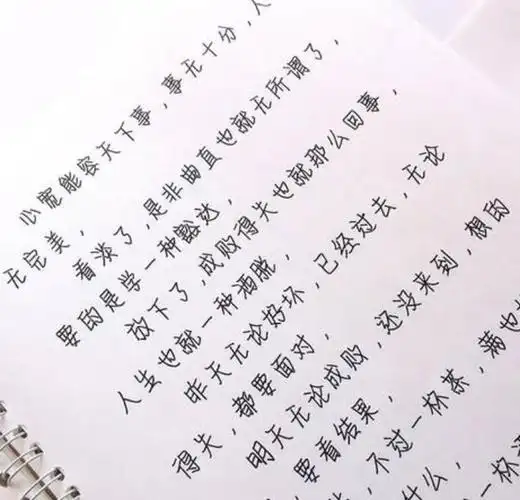 心宽能容天下事，事无十分，人
无完美，
看淡了，是非曲直也就无所谓了，
要的是学一种豁达，
放下了，成败得失也就那么回事，
人生也就一种洒脱，
昨天无论好坏，已经过去，无论
得失，都要面对，
明天无论成败，还没来到，想的
要看结果，
，不过一杯茶，满也
什么，
一杯